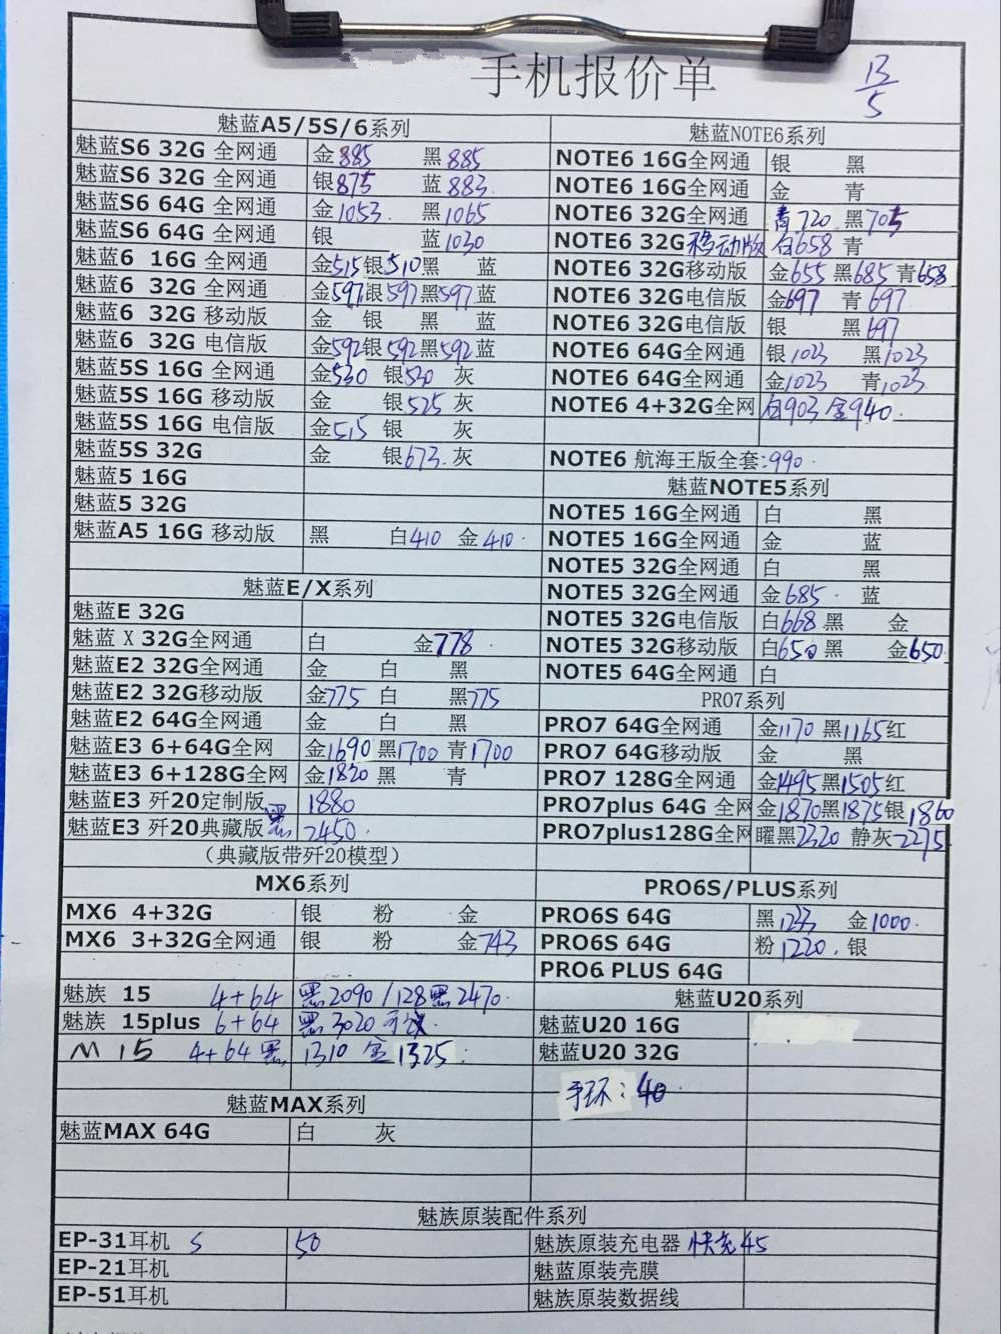 手机报价单
13/5
魅蓝A5/5S/6系列
魅蓝S6 32G 全网通 金885 黑885
魅蓝S6 32G 全网通 银875 蓝883
魅蓝S6 64G 全网通 金1053 黑1065
魅蓝S6 64G 全网通 银 蓝1030
魅蓝6 16G 全网通 金515银510黑 蓝
魅蓝6 32G 全网通 金597银597黑597蓝
魅蓝6 32G 移动版 金 银 黑 蓝
魅蓝6 32G 电信版 金592银592黑592蓝
魅蓝5S 16G 全网通 金530 银530 灰
魅蓝5S 16G 移动版 金 银525 灰
魅蓝5S 16G 电信版 金515 银 灰
魅蓝5S 32G 金 银673 灰
魅蓝5 16G
魅蓝5 32G
魅蓝A5 16G 移动版 黑 白410 金410
魅蓝E/X系列
魅蓝E 32G
魅蓝X 32G全网通 白 金778
魅蓝E2 32G全网通 金 白 黑
魅蓝E2 32G移动版 金775 白 黑775
魅蓝E2 64G全网通 金 白 黑
魅蓝E3 6+64G全网 金1690 黑1700 青1700
魅蓝E3 6+128G全网 金1820 黑 青
魅蓝E3 歼20定制版 1880
魅蓝E3 歼20典藏版 黑 2450
（典藏版带歼20模型）
MX6系列
MX6 4+32G 银 粉 金
MX6 3+32G全网通 银 粉 金743
魅族 15 4+64 黑2090/128黑2470
魅族 15plus 6+64 黑3020
M15 4+64黑 1310 金1325
魅蓝MAX系列
魅蓝MAX 64G 白 灰
魅蓝NOTE6系列
NOTE6 16G全网通 银 黑
NOTE6 16G全网通 金 青
NOTE6 32G全网通 青720 黑705
NOTE6 32G移动版 白658 青
NOTE6 32G移动版 金655 黑685 青658
NOTE6 32G电信版 金697 青697
NOTE6 32G电信版 银 黑697
NOTE6 64G全网通 银1023 黑1023
NOTE6 64G全网通 金1023 青1023
NOTE6 4+32G全网 白903 金940
NOTE6 航海王版全套:990
魅蓝NOTE5系列
NOTE5 16G全网通 白 黑
NOTE5 16G全网通 金 蓝
NOTE5 32G全网通 白 黑
NOTE5 32G全网通 金685 蓝
NOTE5 32G电信版 白668 黑 金
NOTE5 32G移动版 白650 黑 金650
NOTE5 64G全网通 白
PRO7系列
PRO7 64G全网通 金1170 黑1165红
PRO7 64G移动版 金 黑
PRO7 128G全网通 金1495黑1505红
PRO7plus 64G 全网 金1870黑1875银1860
PRO7plus128G全网 曜黑2320 静灰2275
PRO6S/PLUS系列
PRO6S 64G 黑1233 金1000
PRO6S 64G 粉1220 银
PRO6 PLUS 64G
魅蓝U20系列
魅蓝U20 16G
魅蓝U20 32G
手环：40
魅族原装配件系列
EP-31耳机 S 50 魅族原装充电器 快充45
EP-21耳机 魅蓝原装壳膜
EP-51耳机 魅族原装数据线